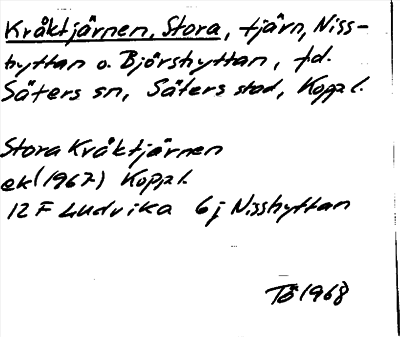 Kråktjärnen, Stora, tjärn, Niss-
hyttan o. Björshyttan, fd.
Säters sn, Säters stad, Koppl.
Stora Kråktjärnen
ek (1967) Koppl.
12 F Ludvika 6 j Nisshyttan
Tö 1968